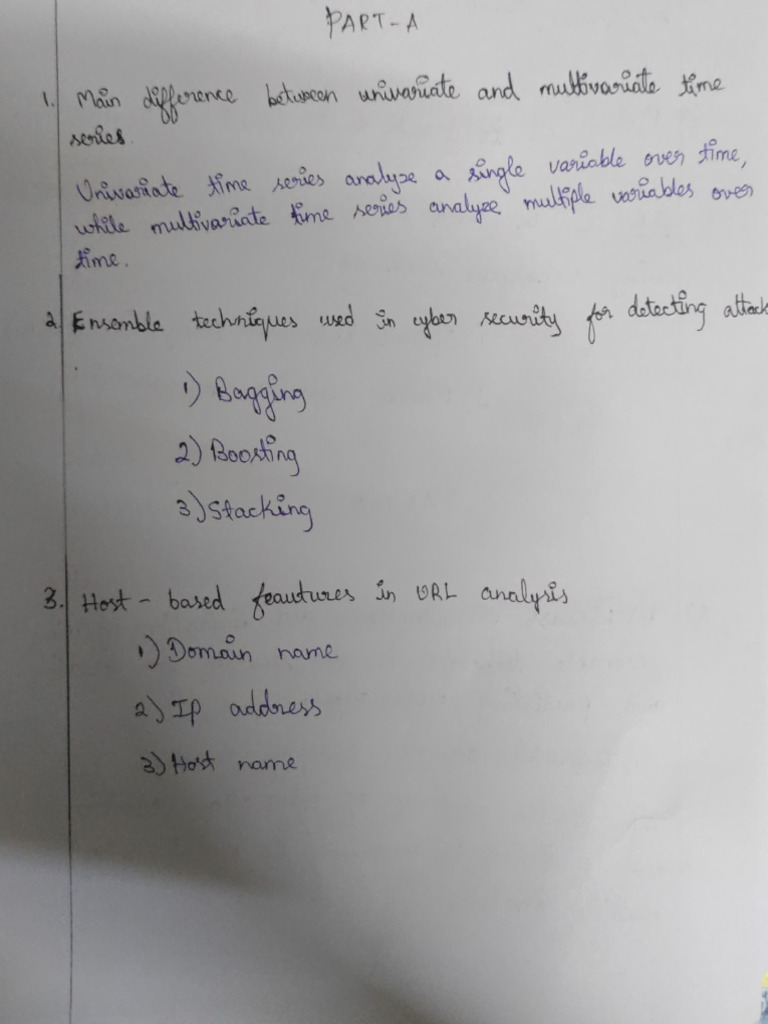 PART-A
1. Main difference between univariate and multivariate time
series.
Univariate time series analyze a single variable over time,
while multivariate time series analyze multiple variables over
time.
2. Ensemble techniques used in cyber security for detecting attack
1) Bagging
2) Boosting
3) Stacking
3. Host - based feautures in URL analysis
1) Domain name
2) IP address
3) Host name